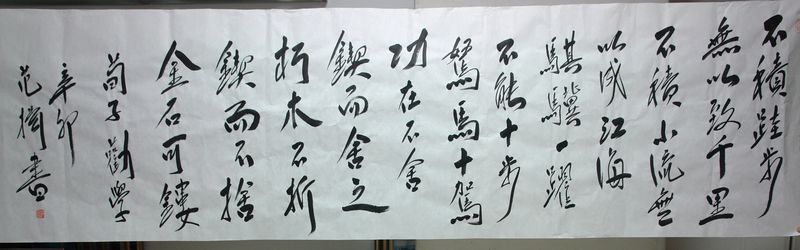 不積跬步
無以致千里
不積小流無
以成江海
騏驥一躍
不能十步
駑馬十駕
功在不舍
鍥而舍之
朽木不折
鍥而不捨
金石可鏤
荀子勸學
辛卯
范衡書